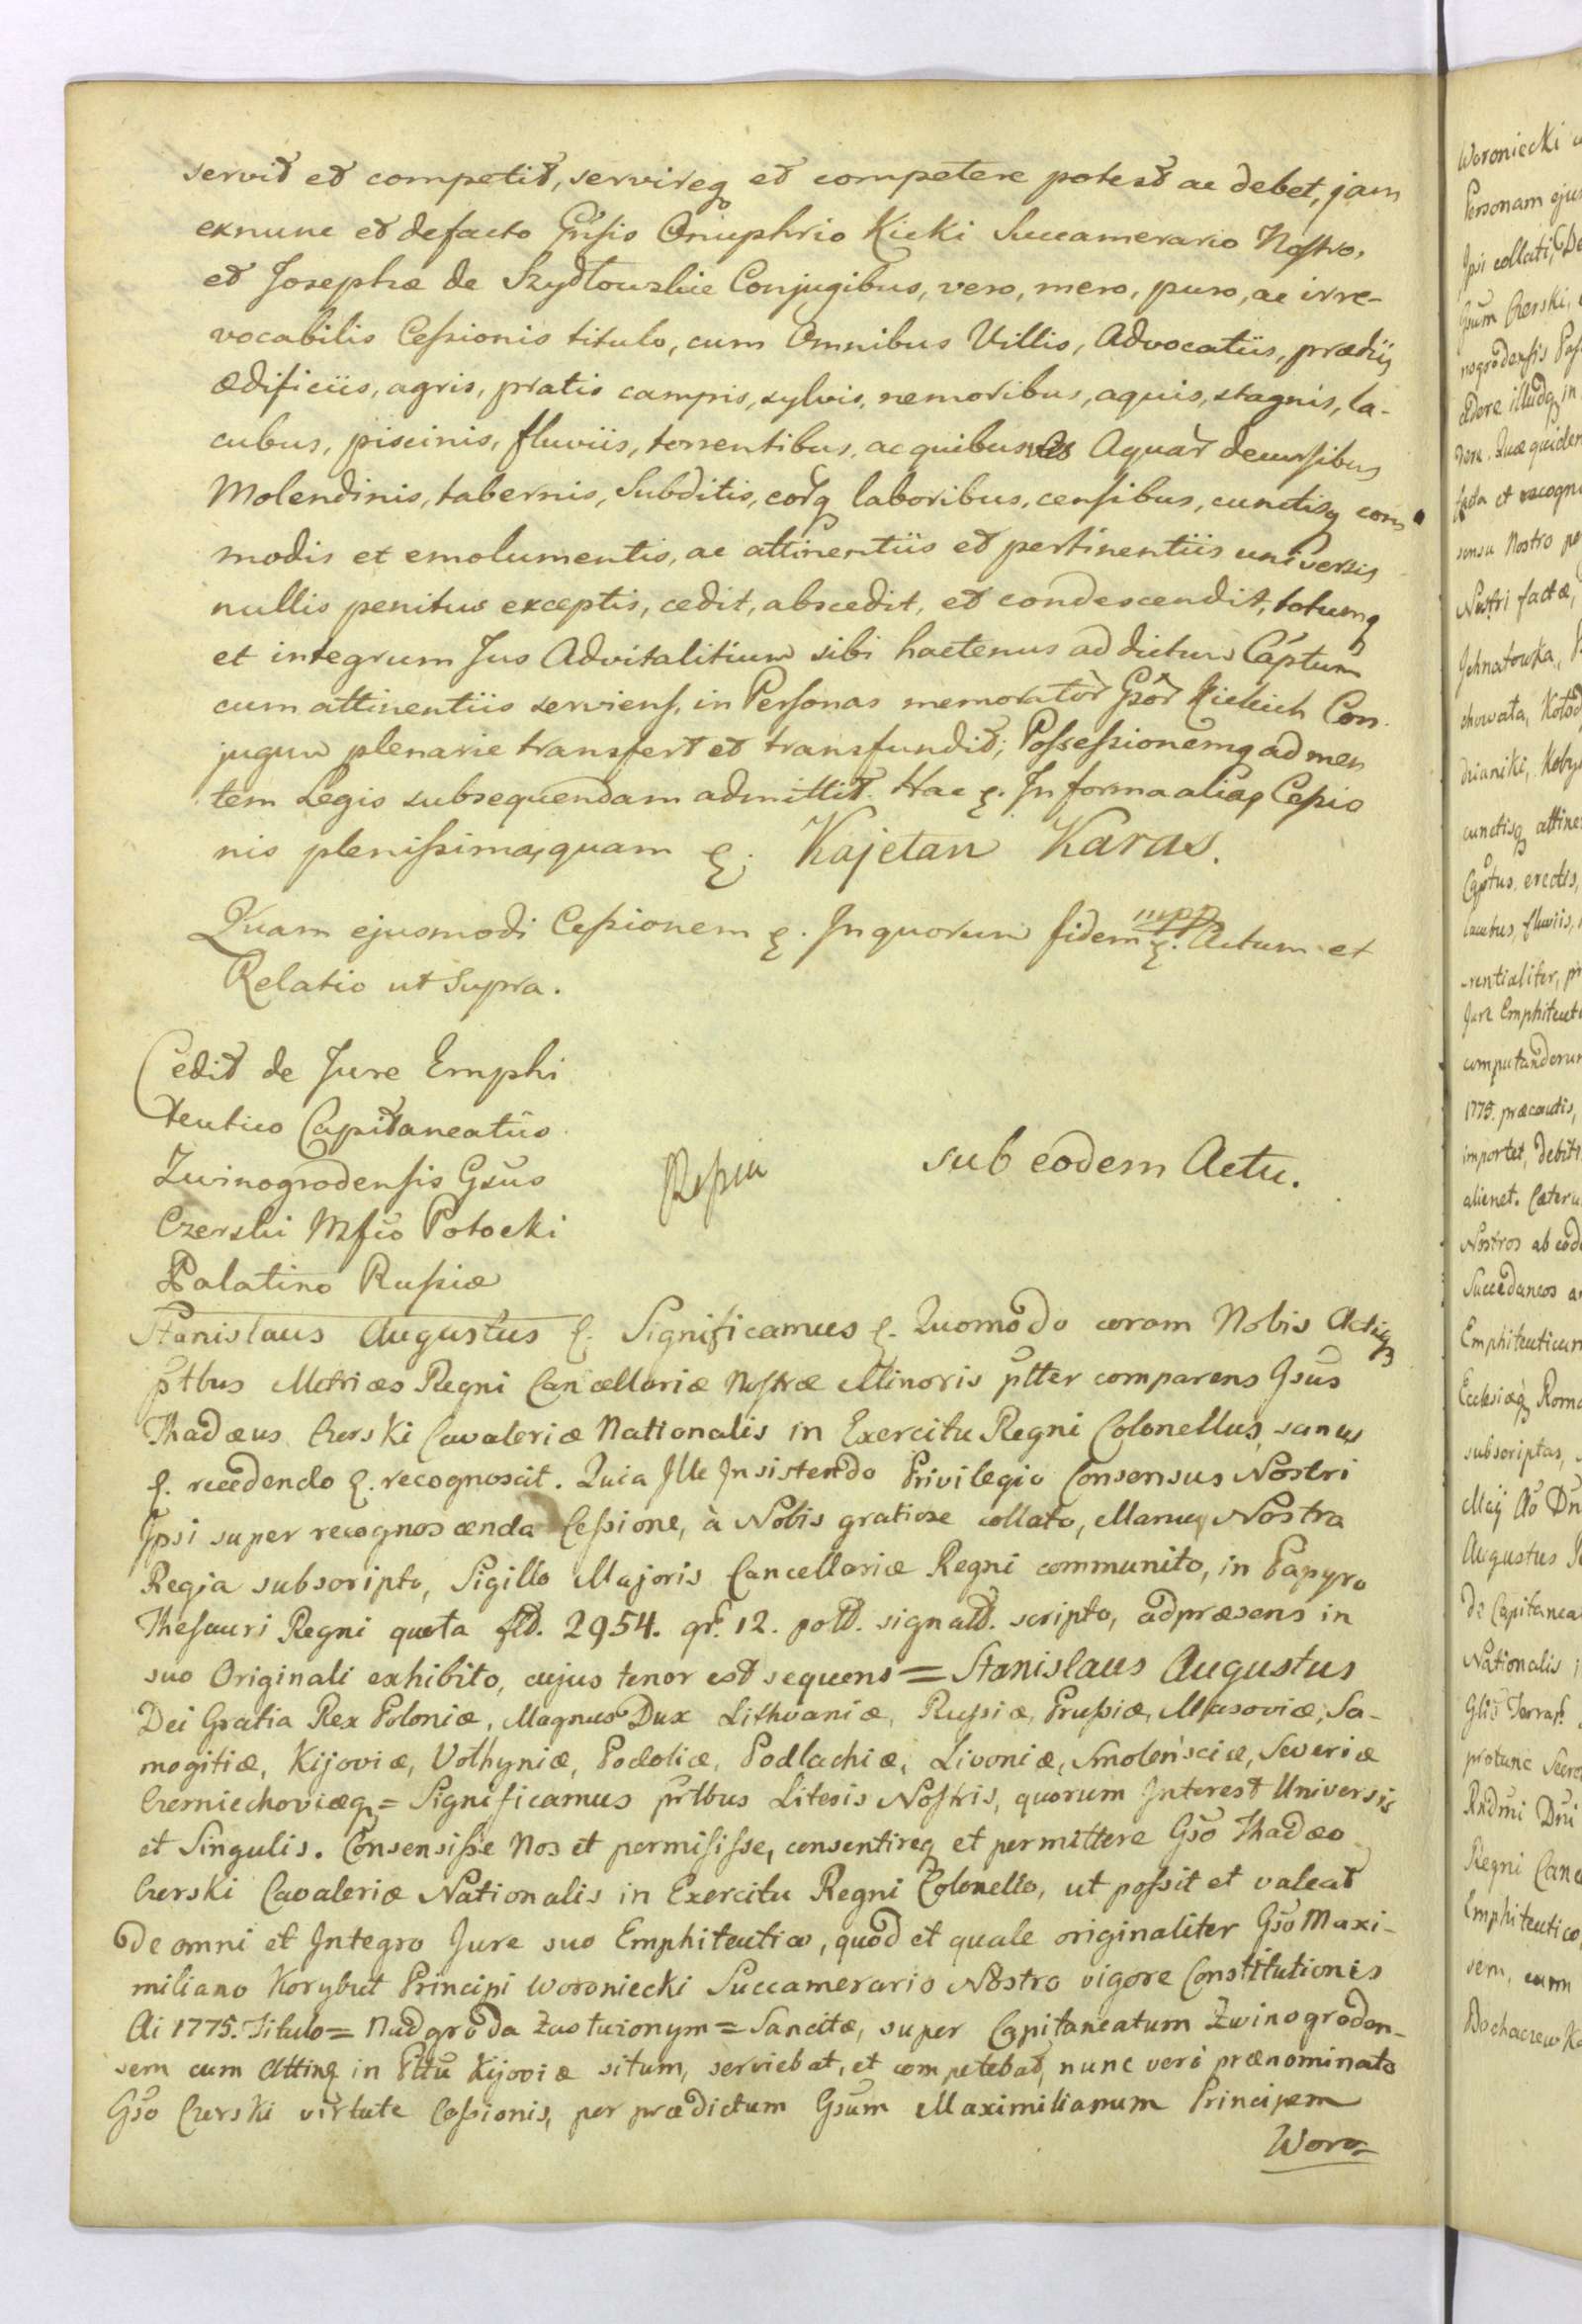 servit et competit, servireq et competere potest ac debet, jam
exnunc et defacto Gnsis Onuphrio Kicki Succamerario Nostro,
et Josephæ de Szydłowskie Conjugibus, vero, mero, puro, ac irre-
vocabilis Cessionis titulo, cum Omnibus Villis, Advocatiis, prædiis
ædificiis, agris, pratis campis, sylvis, nemoribus, aquis, stagnis, la-
cubus, piscinis, fluviis, torrentibus, ac quibusvis Aquar decursibus
Molendinis, tabernis, Subditis, eorq laboribus, censibus, cunctisq com
modis et emolumentis, ac attinentiis et pertinentiis universis
nullis penitus exceptis, cedit, abscedit, et condescendit, totumq
et integrum Jus Advitalitium sibi hactenus ad dictum Captum
cum attinentiis serviens, in Personas memorator Gsor Kickich Con
jugum plenarie transfert et transfundit; Possessionemq ad men
tem Legis subsequendam admittit. Hac &. In forma aliaq Cessio
nis plenissima, quam &. Kajetan Karas.
mpp
Quam ejusmodi Cessionem &. In quorum fidem &. Actum et
Relatio ut Supra.
Cedit de Jure Emphi
teutico Capitaneatûs
Zwinogrodensis Gsus
Czerski Mfco Potocki
Palatino Russiæ
sub eodem Actu.
Stanislaus Augustus &. Significamus &. Quomodo coram Nobis Actisq
prtbus Metrices Regni Cancellariæ Nostræ Minoris pltter comparens Gsus
Thadæus Czerski Cavaleriæ Nationalis in Exercitu Regni Colonellus, sanus
&. recedendo &. recognoscit. Quia Ille Insistendo Privilegio Consensus Nostri
Ipsi super recognoscenda Cessione, à Nobis gratiose collato, Manuq Nostra
Regia subscripto, Sigillo Majoris Cancellariæ Regni communito, in Papyro
Thesauri Regni quota fld. 2954. gr. 12. poltt. signatt. scripto, ad præsens in
suo Originali exhibito, cujus tenor est sequens = Stanislaus Augustus
Dei Gratia Rex Poloniæ, Magnus Dux Lithvaniæ, Russiæ, Prussiæ, Masoviæ, Sa-
mogitiæ, Kijoviæ, Volhyniæ, Podoliæ, Podlachiæ, Livoniæ, Smolensciæ, Severiæ
Czerniechoviæq = Significamus prtbus Literis Nostris, quorum Interest Universis
et Singulis. Consensisse Nos et permisisse, consentireq et permittere Gso Thadæo
Czerski Cavaleriæ Nationalis in Exercitu Regni Colonello, ut possit et valeat
de omni et Integro Jure suo Emphiteutico, quod et quale originaliter Gso Maxi-
miliano Korybut Principi Woroniecki Succamerario Nostro vigore Constitutionis
Ai 1775. Titulo = Nadgroda Zasłużonym = Sancitæ, super Capitaneatum Zwinogroden-
sem cum Attinq in Pttu Kijoviæ situm, serviebat, et competebat, nunc verò prænominato
Gso Czerski virtute Cessionis, per prædictum Gsum Maximilianum Principem
Woro=
Woroniecki
Personam ejus
Ipsi collati,
Gsum Czerski,
cedere illudq in
Quæ quidem
et recogn
sensu Nostro
Nostri factæ,
Ihnatowka,
cunctisq attine
Captus, erectis,
lacubus, fluviis,
Jure Emphiteut
computandorum
1775. præcautis,
importet, debit
alienet. Cæteru
Nostros ab eod
Succedaneos
Emphiteuticum
Ecclesiæq Roma
subscriptas,
Maij Ao Dn
Augustus
de Capitanea
Nationalis
protunc Secre
Rndmi Dni
Regni Canc
Emphiteutico,
sem, cum